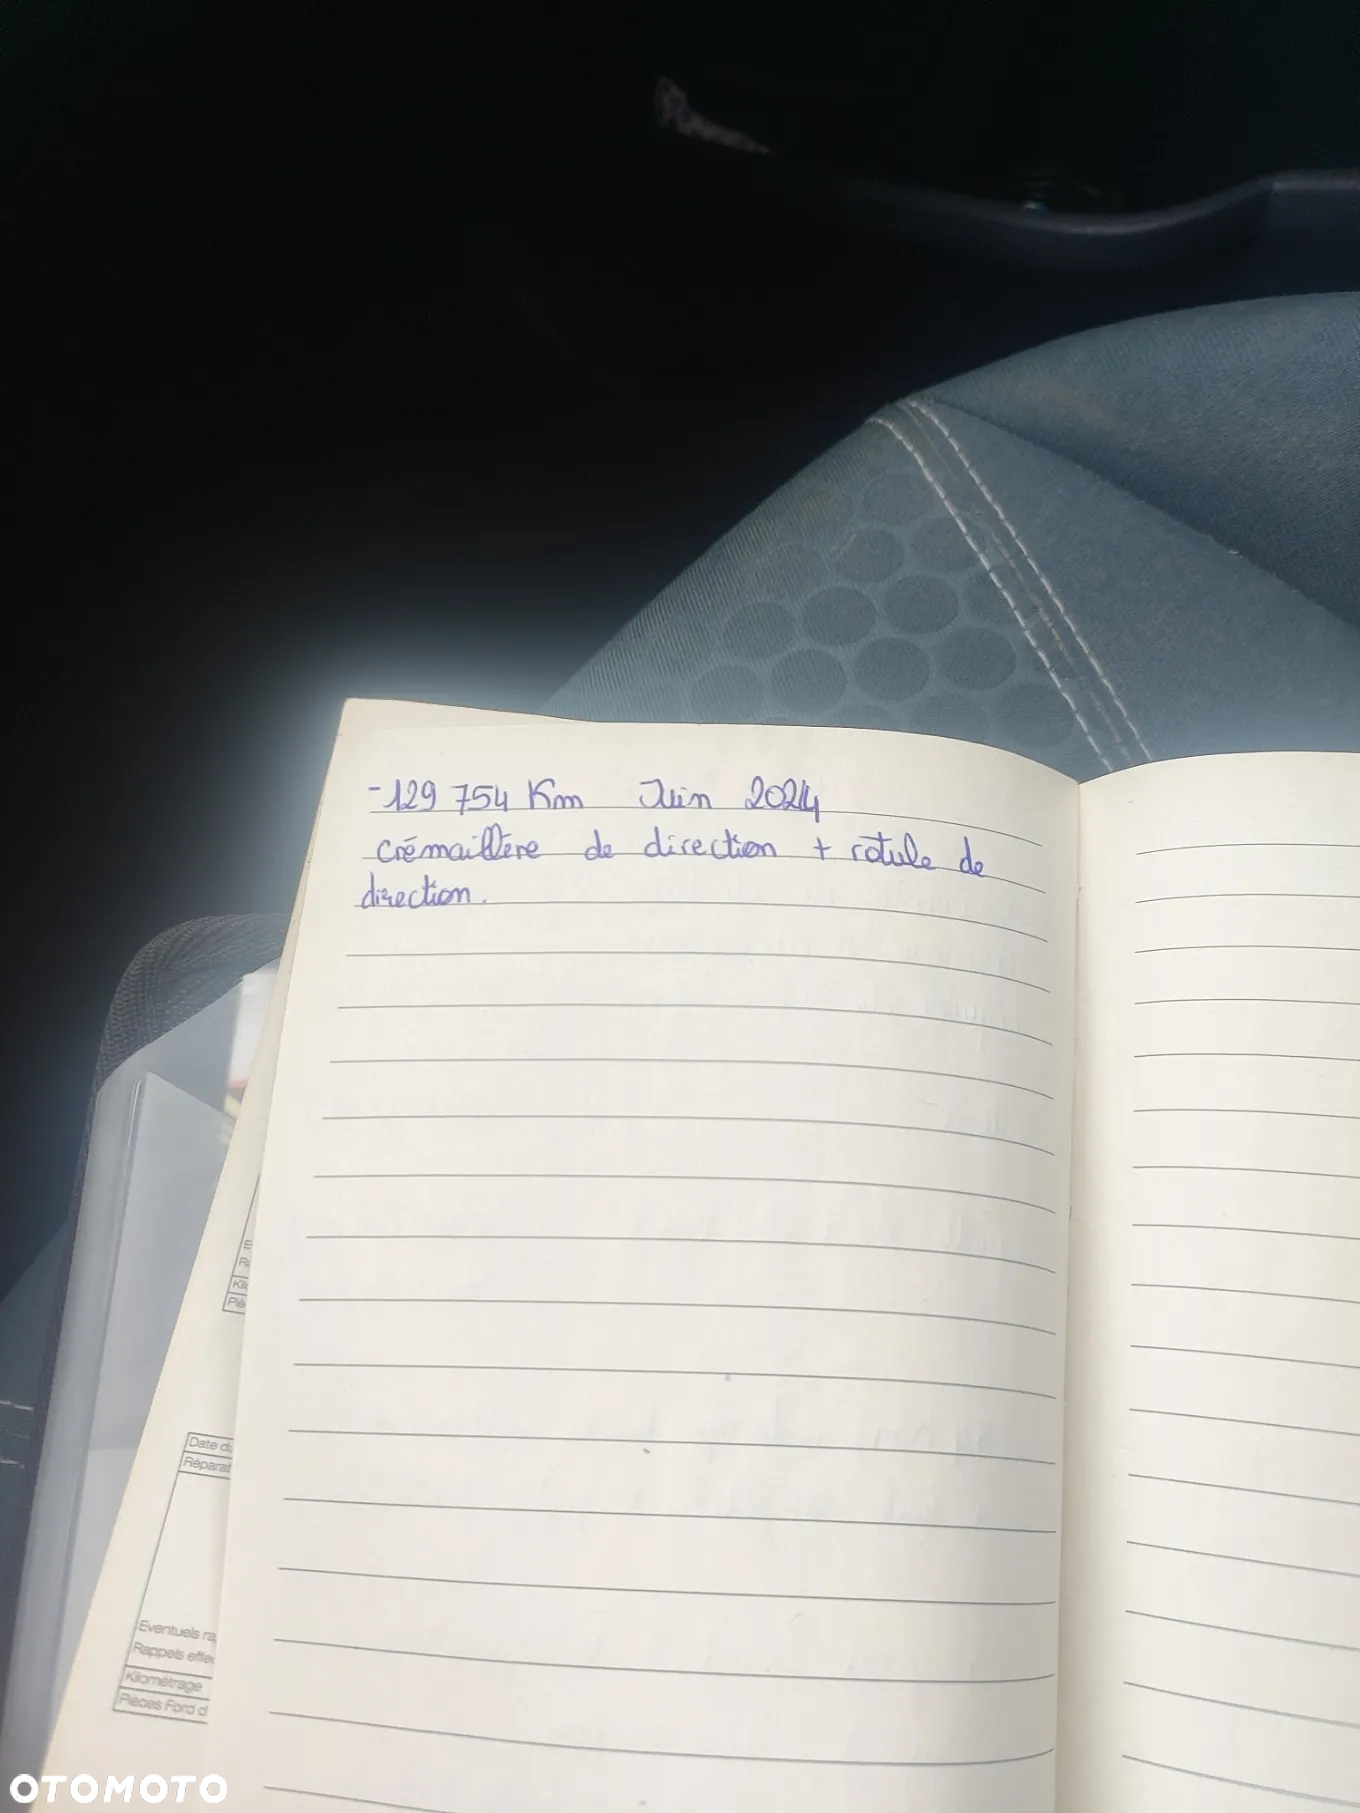 - 129 754 Km Juin 2024
crémaillère de direction + rotule de
direction.
Date du
Réparat
Eventuels ra
Rappels effec
Kilométrage
Pièces Ford d
OTOMOTO